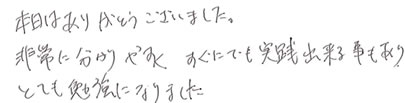 本日はありがとうございました。
非常に分かりやすく すぐにでも実践出来る事もあり
とても勉強になりました